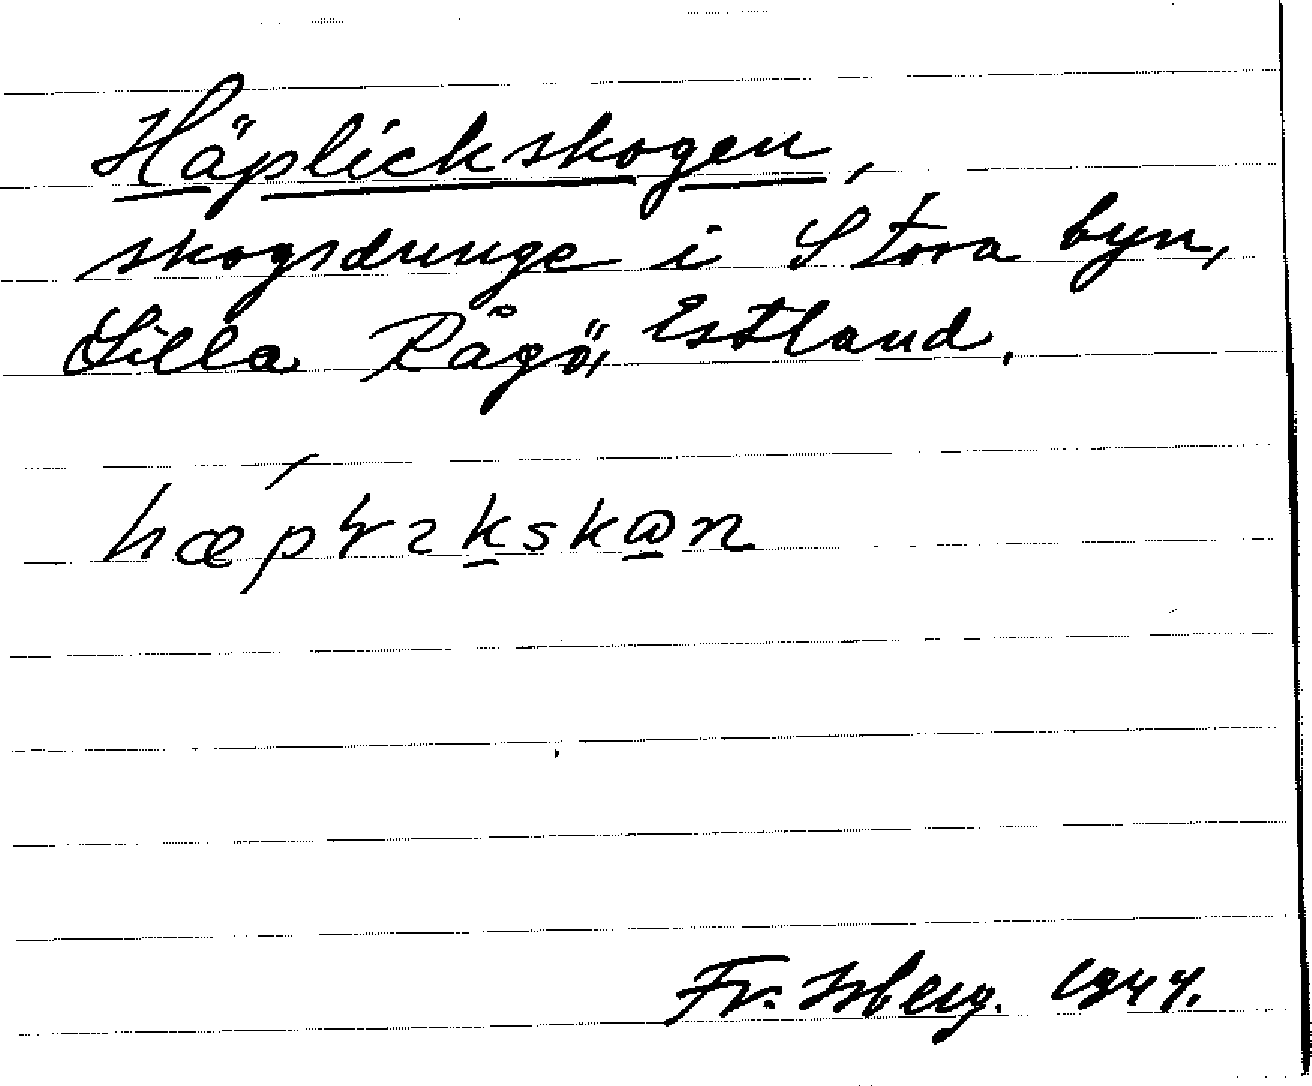 Häplickskogen,
skogsdunge i Stora byn,
Lilla Rågö, Estland.
Fr. Isberg. 1944.